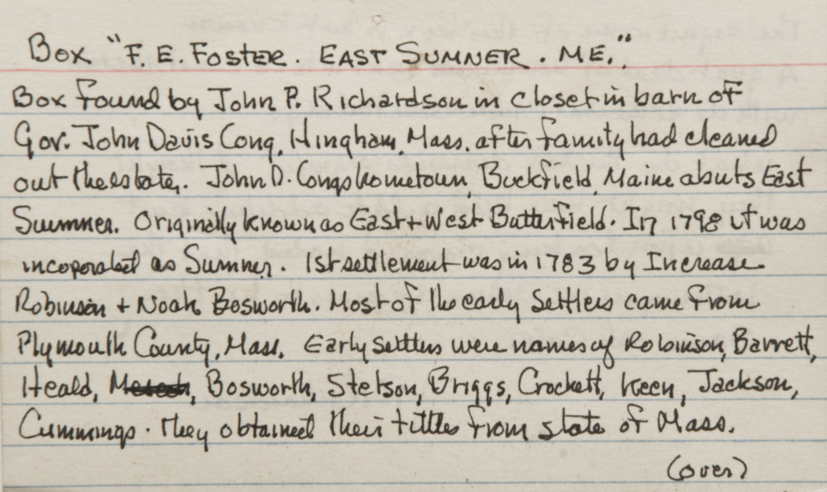 Box "F. E. FOSTER. EAST SUMNER. ME."
Box found by John P. Richardson in closet in barn of
Gov. John Davis Long, Hingham, Mass. after family had cleaned
out the estate. John D. Longs hometown, Buckfield, Maine abuts East
Sumner. Originally known as East + West Butterfield. In 1798 it was
incoporated as Sumner. 1st settlement was in 1783 by Increase
Robinson + Noah Bosworth. Most of the early settlers came from
Plymouth County, Mass. Early settlers were names of Robinson, Barrett,
Heald, Bosworth, Stetson, Briggs, Crockett, Keen, Jackson,
Cummings. They obtained their tittles from state of Mass.
(over)